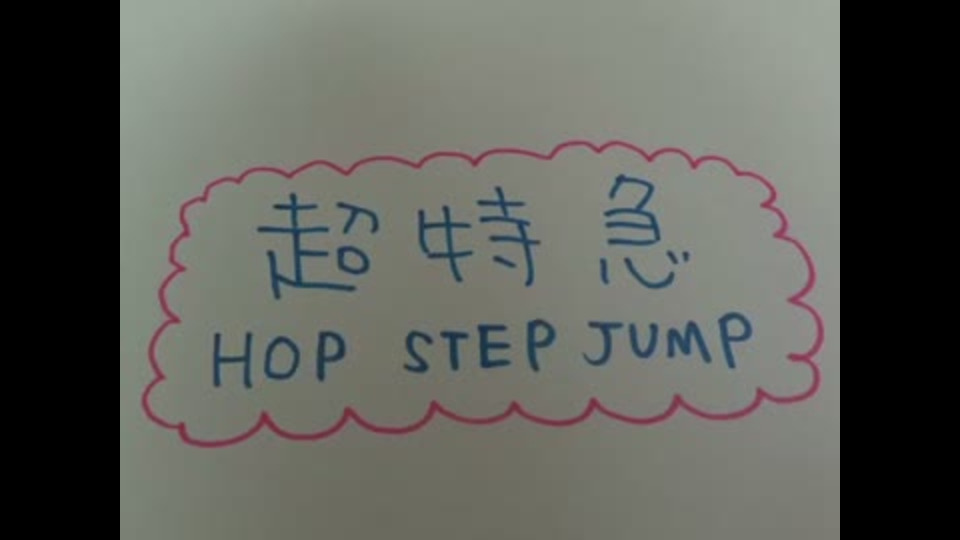 超特急
HOP STEP JUMP